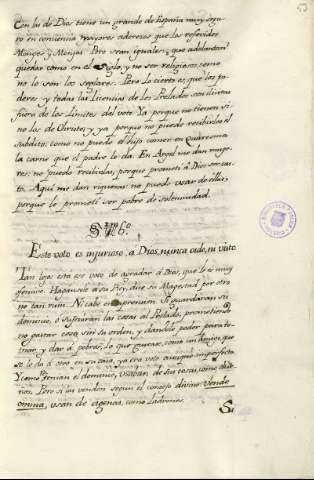 Con las de Dios tiene un grande de España muy segu-
ro en conciencia mayores aderezos que los referidos
Monges y Monjas. Pero sean iguales; que adelantan
quedar como en el siglo, y no ser religiosos como
no lo son los seglares. Pero lo cierto es, que los pa-
deres y todas las licencias de los Prelados son ilicitas
fuera de los limites del voto. Ya porque no tienen si-
no las de Christo; y ya porque no puede recibirlas el
subdito, como no puede el hijo comer en Quaresma
la carne que el padre le da. En Argel me dan muge-
res: no puedo recibirlas, porque prometi a Dios ser cas-
to. Aqui me dan riquezas: no puedo usar de ellas,
porque le prometi ser pobre de solemnidad.
S. 6º.
Este voto es injurioso, a Dios, nunca oido, ni visto.
Tan lejos esta ese voto de agradar a Dios, que le es muy
Haganselo a su Rey, dice su Magestad por otro
no tan ruin. Ni cabe en Si guardaran su
dominio, o sus las casas al Prelado, prometiendo
no gastar cosa sin su orden, y dandole poder para to-
mar, y dar a pobres, lo que gustase, como un
se le da a otro en su casa, ya era voto aunque imperfecto
Y como tenian el dominio, usaban de sus cosas, como
Pero si las venden segun el consejo divino: Vende
omnia, usan de agenas, como Ladrones.
S.